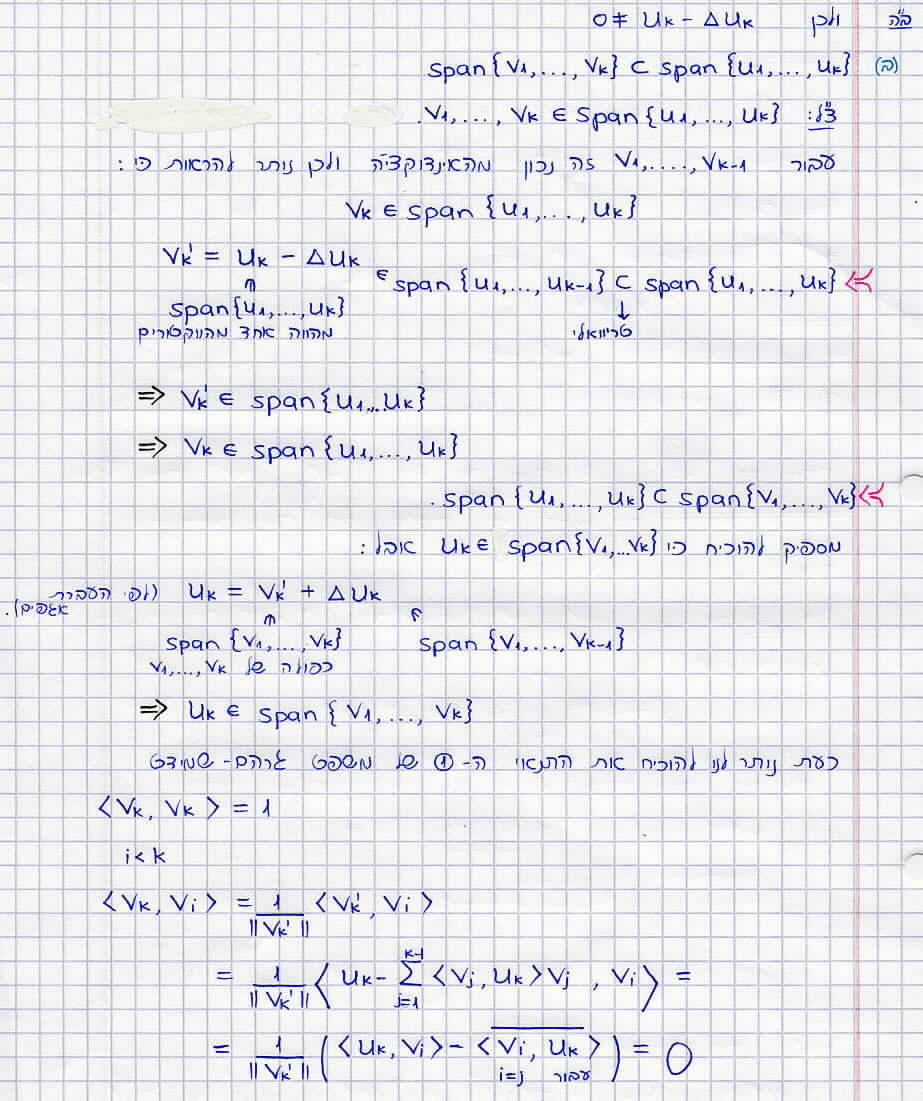 ב"ה
ולכן u_k - Δu_k ≠ 0
(ב) span{v_1,...,v_k} ⊂ span{u_1,...,u_k}
צ"ל: v_1,...,v_k ∈ span{u_1,...,u_k}.
עבור v_1,....,v_{k-1} זה נכון מהאינדוקציה ולכן נותר להראות כי:
v_k ∈ span{u_1,...,u_k}
v_k' = u_k - Δu_k ∈ span{u_1,...,u_{k-1}} ⊂ span{u_1,...,u_k}
∈ ↓
span{u_1,...,u_k} טריוויאלי
מהווה אחד מהווקטורים
⇒ v_k' ∈ span{u_1,..,u_k}
⇒ v_k ∈ span{u_1,...,u_k}
span{u_1,...,u_k} ⊂ span{v_1,...,v_k}.
מספיק להוכיח כי u_k ∈ span{v_1,...v_k} אבל:
u_k = v_k' + Δu_k (לפי העברת אגפים).
∈ ∈
span{v_1,...,v_k} span{v_1,...,v_{k-1}}
כפולה של v_1,...,v_k
⇒ u_k ∈ span{v_1,...,v_k}
כעת נותר לנו להוכיח את התנאי ה-① של משפט גרהם-שמידט
⟨v_k, v_k⟩ = 1
i<k
⟨v_k, v_i⟩ = 1/||v_k'|| ⟨v_k', v_i⟩
= 1/||v_k'|| ⟨u_k - Σ_{j=1}^{k-1} ⟨v_j, u_k⟩v_j , v_i⟩ =
= 1/||v_k'|| (⟨u_k, v_i⟩ - \overline{⟨v_i, u_k⟩}) = 0
עבור i=j